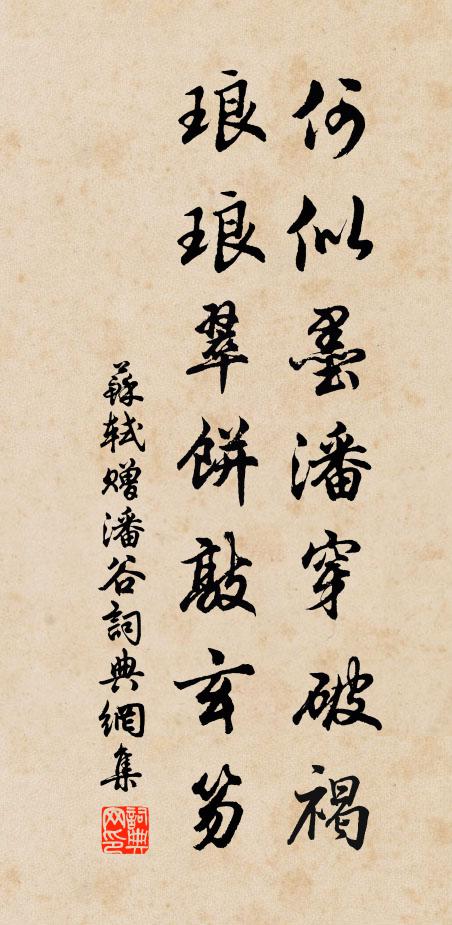 何似墨潘穿破褐
琅琅翠餅敲玄笏
蘇軾贈潘谷詞典網集
詞典網印